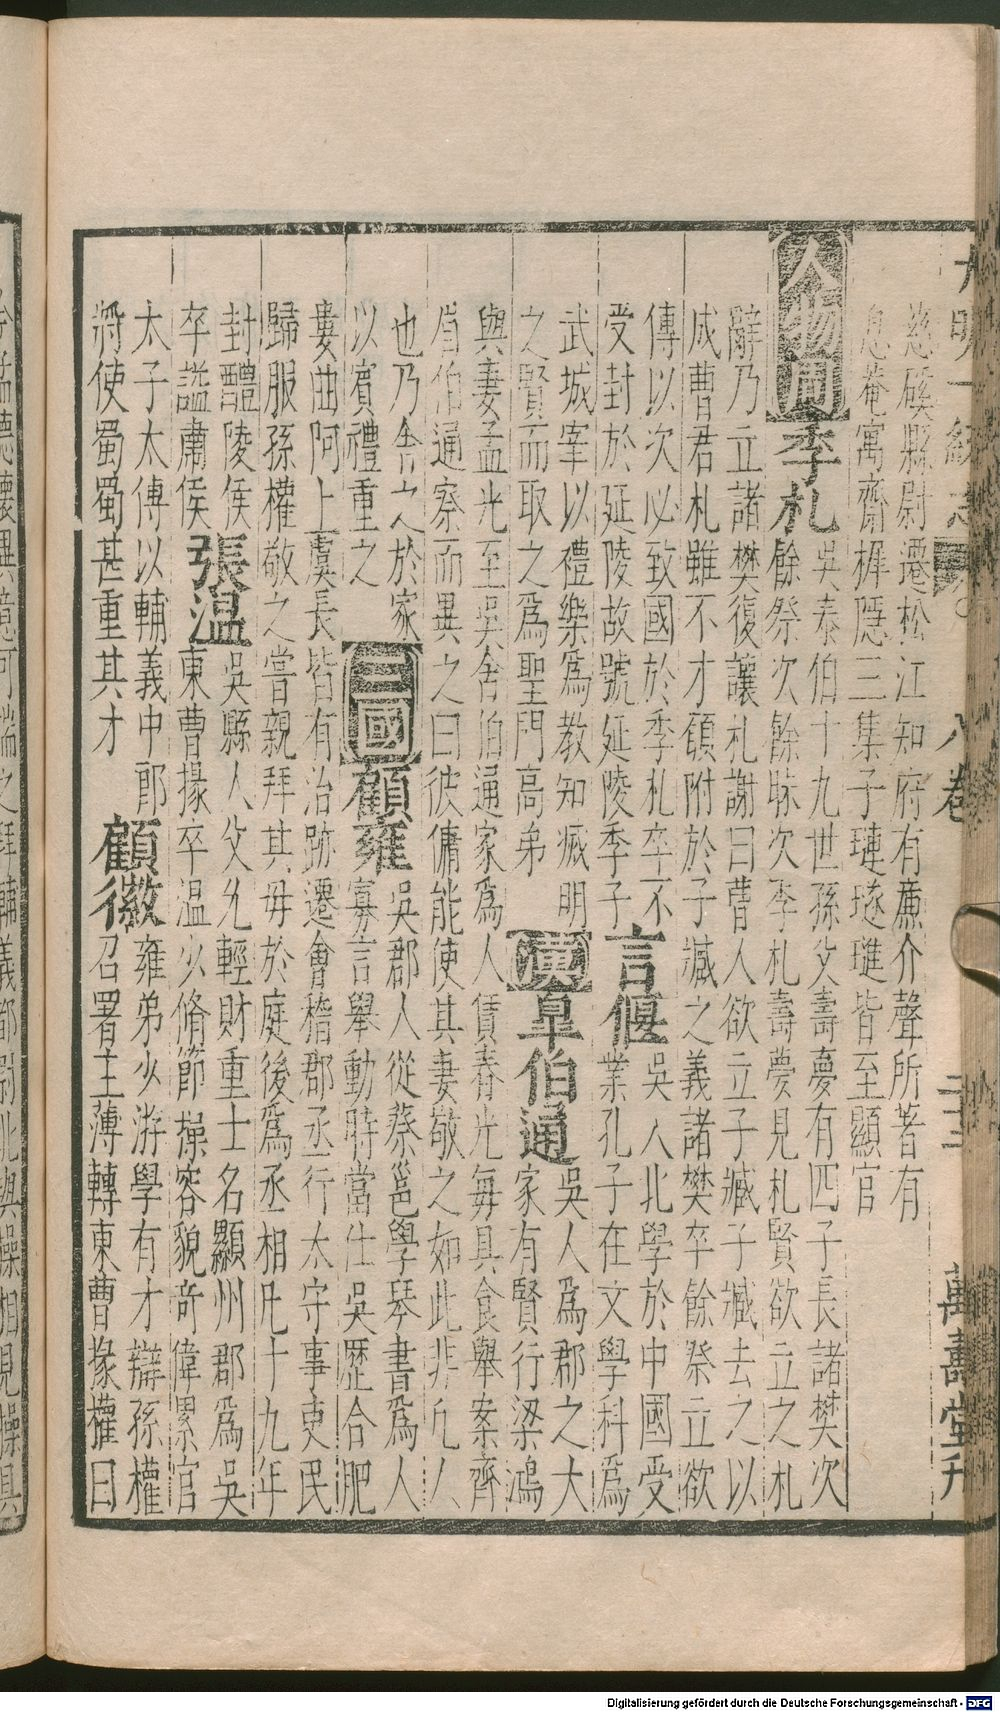 大明一統志 八卷 萬壽堂刊
慈磎縣尉遷松江知府有廉介聲所著有
息菴寓齋樨隱三集子璉璲璡皆至顯官
人物周季札吳泰伯十九世孫父壽夢有四子長諸樊次
餘祭次餘昧次季札壽夢見札賢欲立之札
辭乃立諸樊復讓札謝曰曹人欲立子臧子臧去之以
成曹君札雖不才願附於子臧之義諸樊卒餘祭立欲
傳以次必致國於季札卒不
受封於延陵故號延陵季子
言偃吳人北學於中國受
業孔子在文學科為
武城宰以禮樂為教知滅明
之賢而取之為聖門高弟
漢皋伯通吳人為郡之大
家有賢行梁鴻
與妻孟光至吳舍伯通家為人賃舂光每具食舉案齊
眉伯通察而異之曰彼傭能使其妻敬之如此非凡人
也乃舍之於家
以賓禮重之
三國顧雍吳郡人從蔡邕學琴書為人
寡言舉動時當仕吳歷合肥
婁曲阿上虞長皆有治跡遷會稽郡丞行太守事吏民
歸服孫權敬之嘗親拜其母於庭後為丞相凡十九年
封醴陵侯
卒謚肅侯
張温吳縣人父允輕財重士名顯州郡為吳
東曹掾卒温少脩節操容貌奇偉累官
太子太傅以輔義中郎
將使蜀蜀甚重其才
顧徽雍弟少游學有才辯孫權
召署主薄轉東曹掾權曰
之拜輔義都尉北與操相見操具
Digitalisierung gefördert durch die Deutsche Forschungsgemeinschaft - DFG